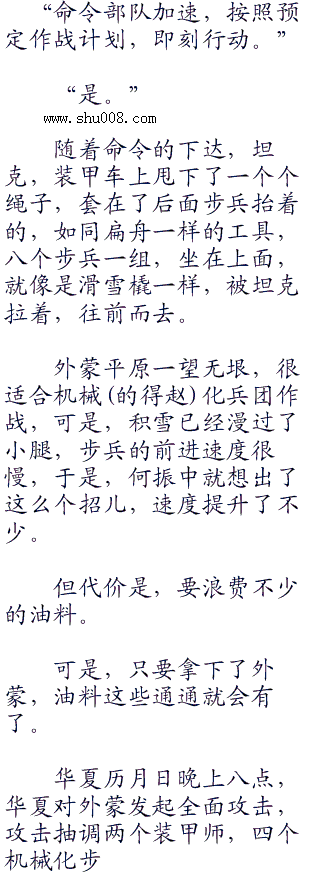 “命令部队加速，按照预
定作战计划，即刻行动。”
“是。”
www.shu008.com
随着命令的下达，坦
克，装甲车上甩下了一个个
绳子，套在了后面步兵抬着
的，如同扁舟一样的工具，
八个步兵一组，坐在上面，
就像是滑雪橇一样，被坦克
拉着，往前而去。
外蒙平原一望无垠，很
适合机械(的得赵)化兵团作
战，可是，积雪已经漫过了
小腿，步兵的前进速度很
慢，于是，何振中就想出了
这么个招儿，速度提升了不
少。
但代价是，要浪费不少
的油料。
可是，只要拿下了外
蒙，油料这些通通就会有
了。
华夏历月日晚上八点，
华夏对外蒙发起全面攻击，
攻击抽调两个装甲师，四个
机械化步